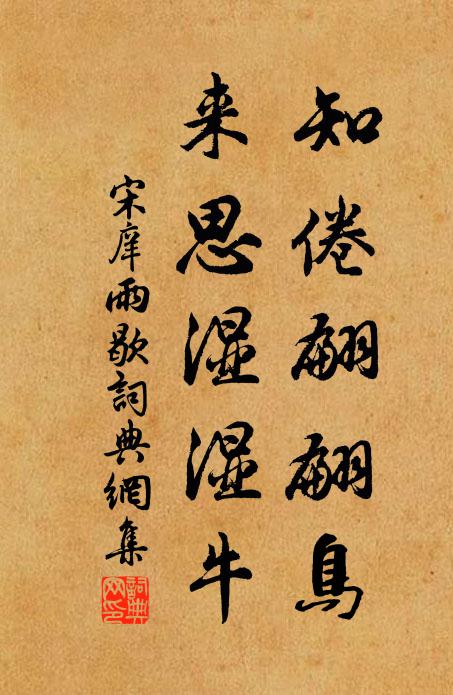 知倦翩翩鳥
来思湿湿牛
宋庠雨歇詞典網集
詞典網印